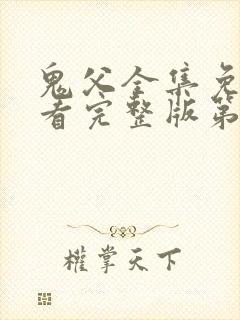 鬼父全集免
看完整版第
權掌天下